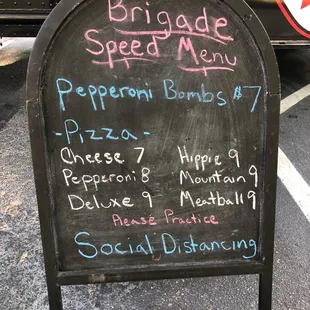 Brigade
Speed Menu
Pepperoni Bombs $7
-Pizza-
Cheese 7 Hippie 9
Pepperoni 8 Mountain 9
Deluxe 9 Meatball 9
Please Practice
Social Distancing